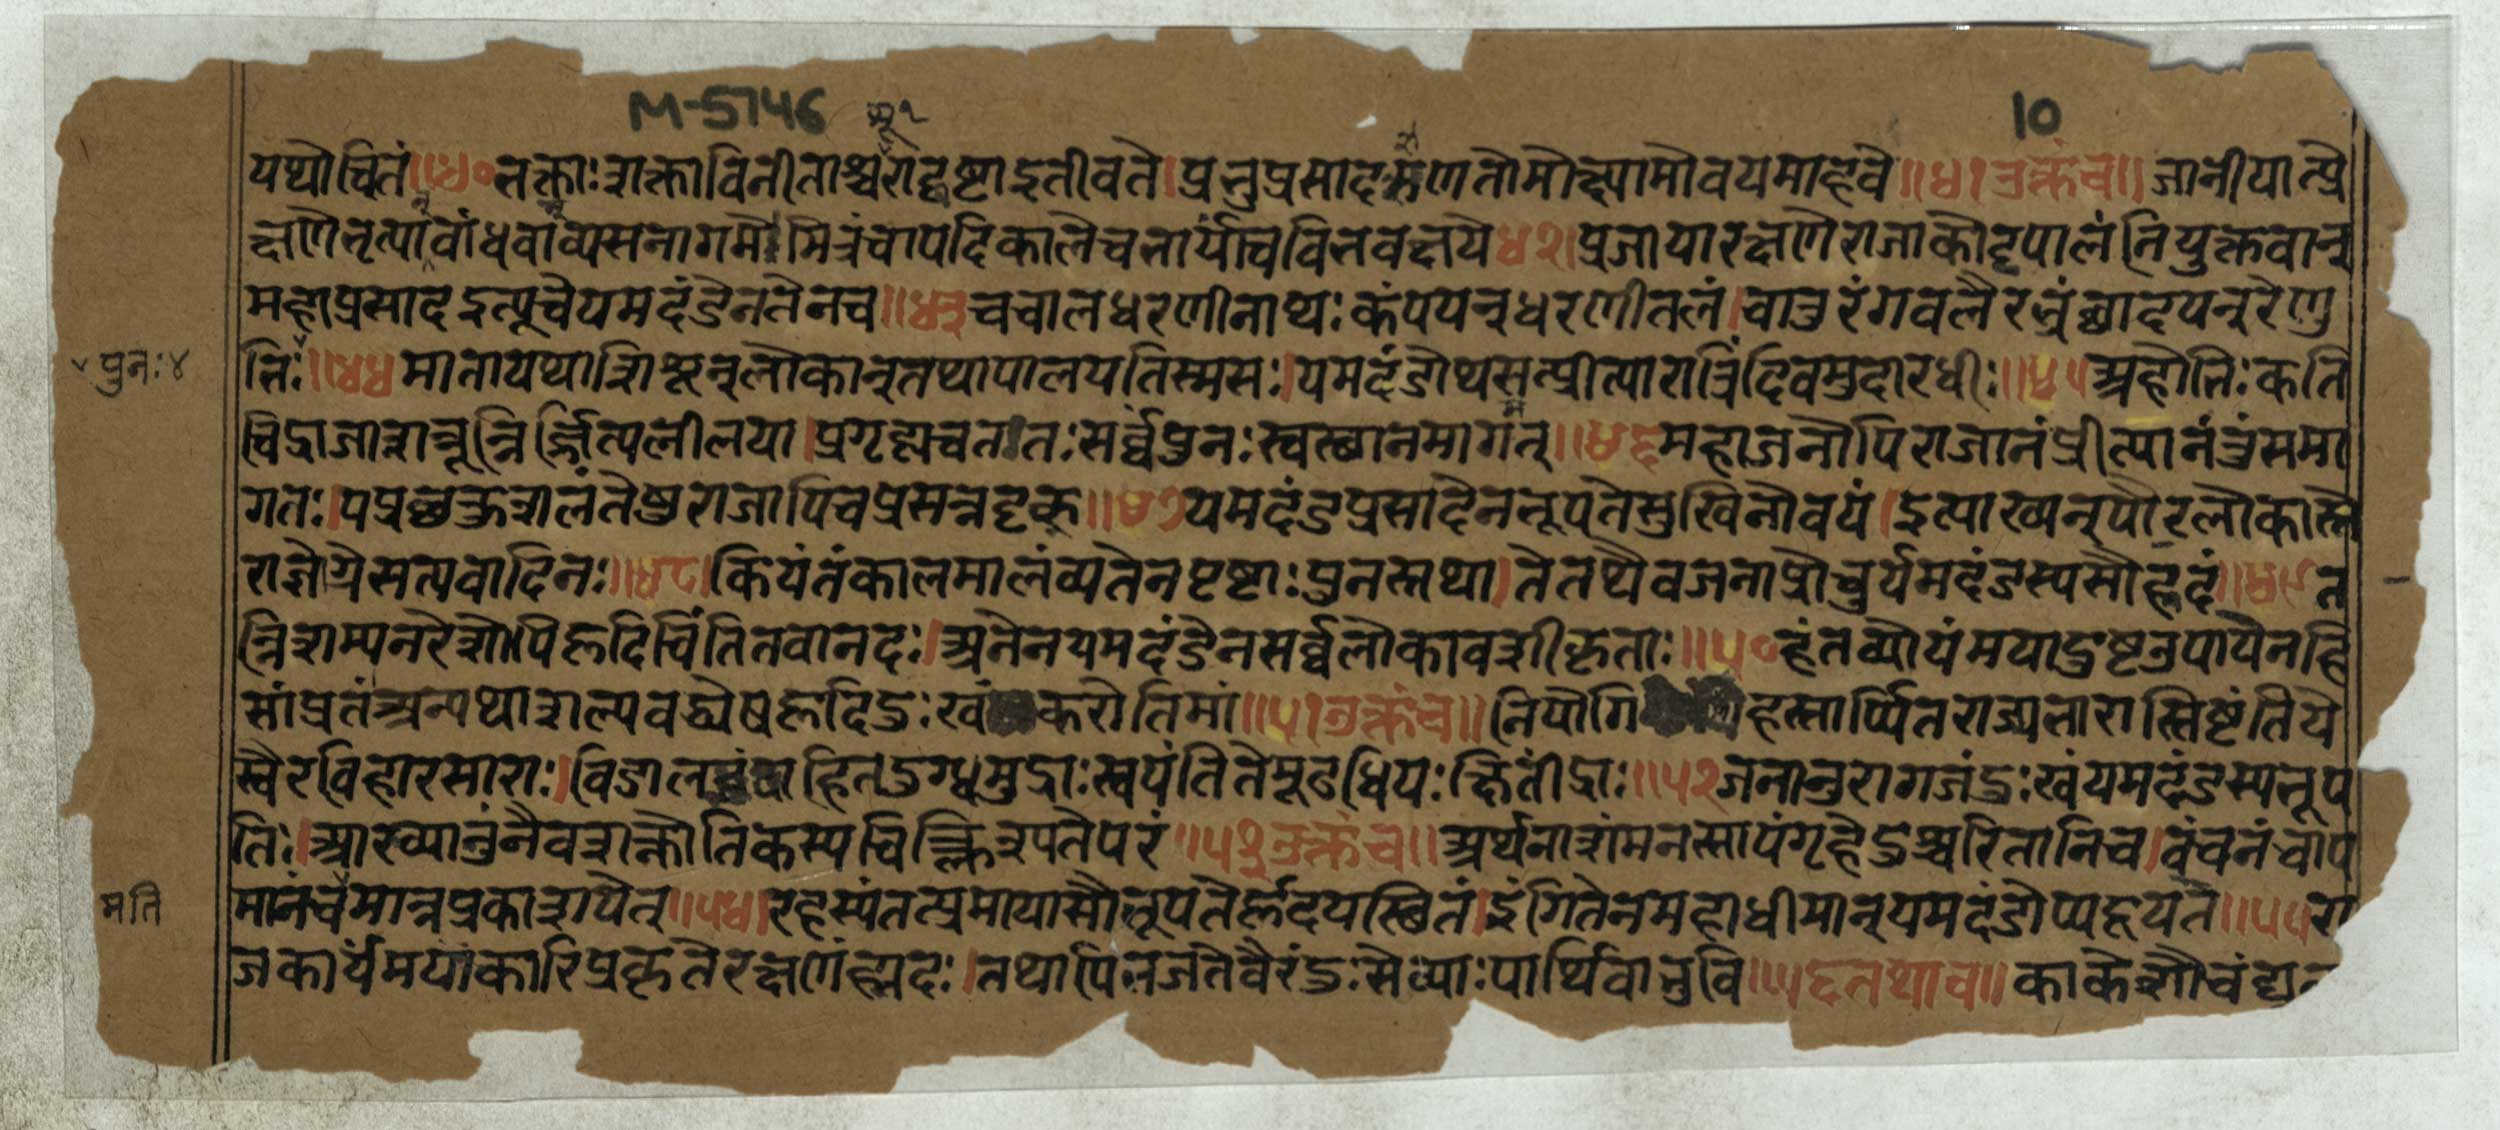 M-5746
10
यथोचितं॥४०भक्ताःशक्ताविनीताश्च राहृष्टाइतीवते।प्रभुप्रसाद णतोमोक्ष्यामोवयमाहवे॥४१उक्तंच॥जानीयात्प्रे
क्षणेभृत्यान्बांधवान्व्यसनागमे मित्रंचापदिकालेचभार्यांचविभवक्षये४२।प्रजायारक्षणेराजाकोट्टपालंनियुक्तवान्
महाप्रसादइत्यूचेयमदंडेनतेनच॥४३चचालधरणीनाथःकंपयन्धरणीतलं।चातुरंगबलैरभ्रंछादयन्रेणु
पुनः४
भिः॥४४मातायथाशिशून्लोकान्तथापालयतिस्मसः।यमदंडोथसत्प्रीत्यारात्रिंदिवमुदारधीः॥४५अहोभिःकति
चिद्राजाशत्रून्निर्ज्जित्यलीलया।प्रगृह्यचत तःसर्व्वंपुनःस्वस्थानमागमत्॥४६महाजनोपिराजानंप्रीत्यानंतुंसमा
गतः।पप्रच्छकुशलंतेषुराजापिचप्रसन्नदृक्॥४७यमदंडप्रसादेनभूपतेसुखिनोवयं।इत्याख्यन्पौरलोकास्ते
राज्ञोग्रेसत्यवादिनः॥४८।कियंतंकालमालंब्यतेनपृष्टाःपुनस्तथा।तेतथैवजनाप्रोचुर्यमदंडस्यसौहृदं॥४९त
न्निशम्यनरेशोपिहृदिचिंतितवानदः।अनेनयमदंडेनसर्व्वलोकावशीकृताः॥५०हंतव्योयंमयादुष्टउपायेनहि
सांप्रतंअन्यथाशल्यवद्येषहृदिदुःखं करोतिमां॥५१उक्तंच॥नियोगि हस्तार्प्पितराज्यभारास्तिष्टंतिये
स्वैरविहारसाराः।बिडाल हितदुग्धमुद्राःस्वपंतितेमूढधियःक्षितींद्राः॥५२जनानुरागजंदुःखंयमदंडस्यभूप
तिः।आख्यातुंनैवशक्नोतिकस्यचित्क्लिश्यतेपरं॥५३उक्तंच॥अर्थनाशंमनस्तापंगृहेदुश्चरितानिच।वंचनंचाप
मति
मानंचमान्नप्रकाशयेत्॥५४।रहस्यंतत्प्रमायासौभूपतेर्हृदयस्थितं।इंगितेनमहाधीमान्यमदंडोप्यदूयत॥५५रा
जकार्यंमयाकारिप्रकृतेरक्षणंह्यदः।तथापिभजतेवैरंदुःसेव्याःपार्थिवाभुवि॥५६तथाच॥काकेशौचंद्यूत